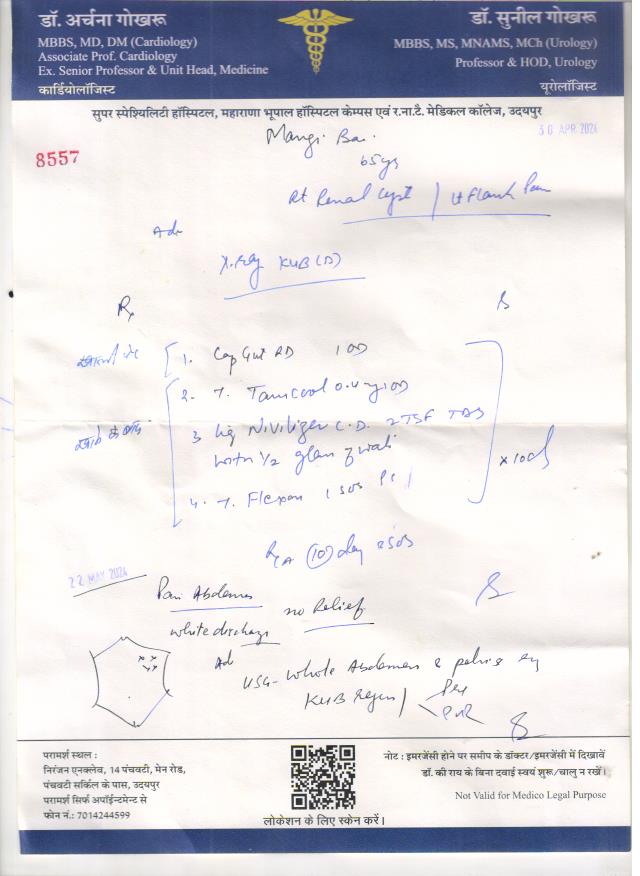 डॉ. अर्चना गोखरू
MBBS, MD, DM (Cardiology)
Associate Prof. Cardiology
Ex. Senior Professor & Unit Head, Medicine
कार्डियोलॉजिस्ट
डॉ. सुनील गोखरू
MBBS, MS, MNAMS, MCh (Urology)
Professor & HOD, Urology
यूरोलॉजिस्ट
सुपर स्पेश्यिलिटी हॉस्पिटल, महाराणा भूपाल हॉस्पिटल केम्पस एवं र.ना.टै. मेडिकल कॉलेज, उदयपुर
30 APR 2024
8557
Mangi Bai
65yrs
Rt Renal Cyst / Lt Flank Pain
Adv
X-Ray KUB (D)
Rx
1. Cap Gut RD 1 OD
2. T. 0.4 mg OD
3 2 TSF TDS
with 1/2 glass of water
4. T. Flexon 1 SOS
x 10d
(10) day SOS
22 MAY 2024
Pain Abdomen
no Relief
white discharge
Ad
USG- Whole Abdomen & pelvis
KUB region
Pre
PVR
परामर्श स्थल :
निरंजन एनक्लेव, 14 पंचवटी, मेन रोड,
पंचवटी सर्किल के पास, उदयपुर
परामर्श सिर्फ अपॉईन्टमेन्ट से
फोन नं.: 7014244599
लोकेशन के लिए स्केन करें।
नोट : इमरजेंसी होने पर समीप के डॉक्टर/इमरजेंसी में दिखावें
डॉ. की राय के बिना दवाई स्वयं शुरू/चालु न रखें।
Not Valid for Medico Legal Purpose